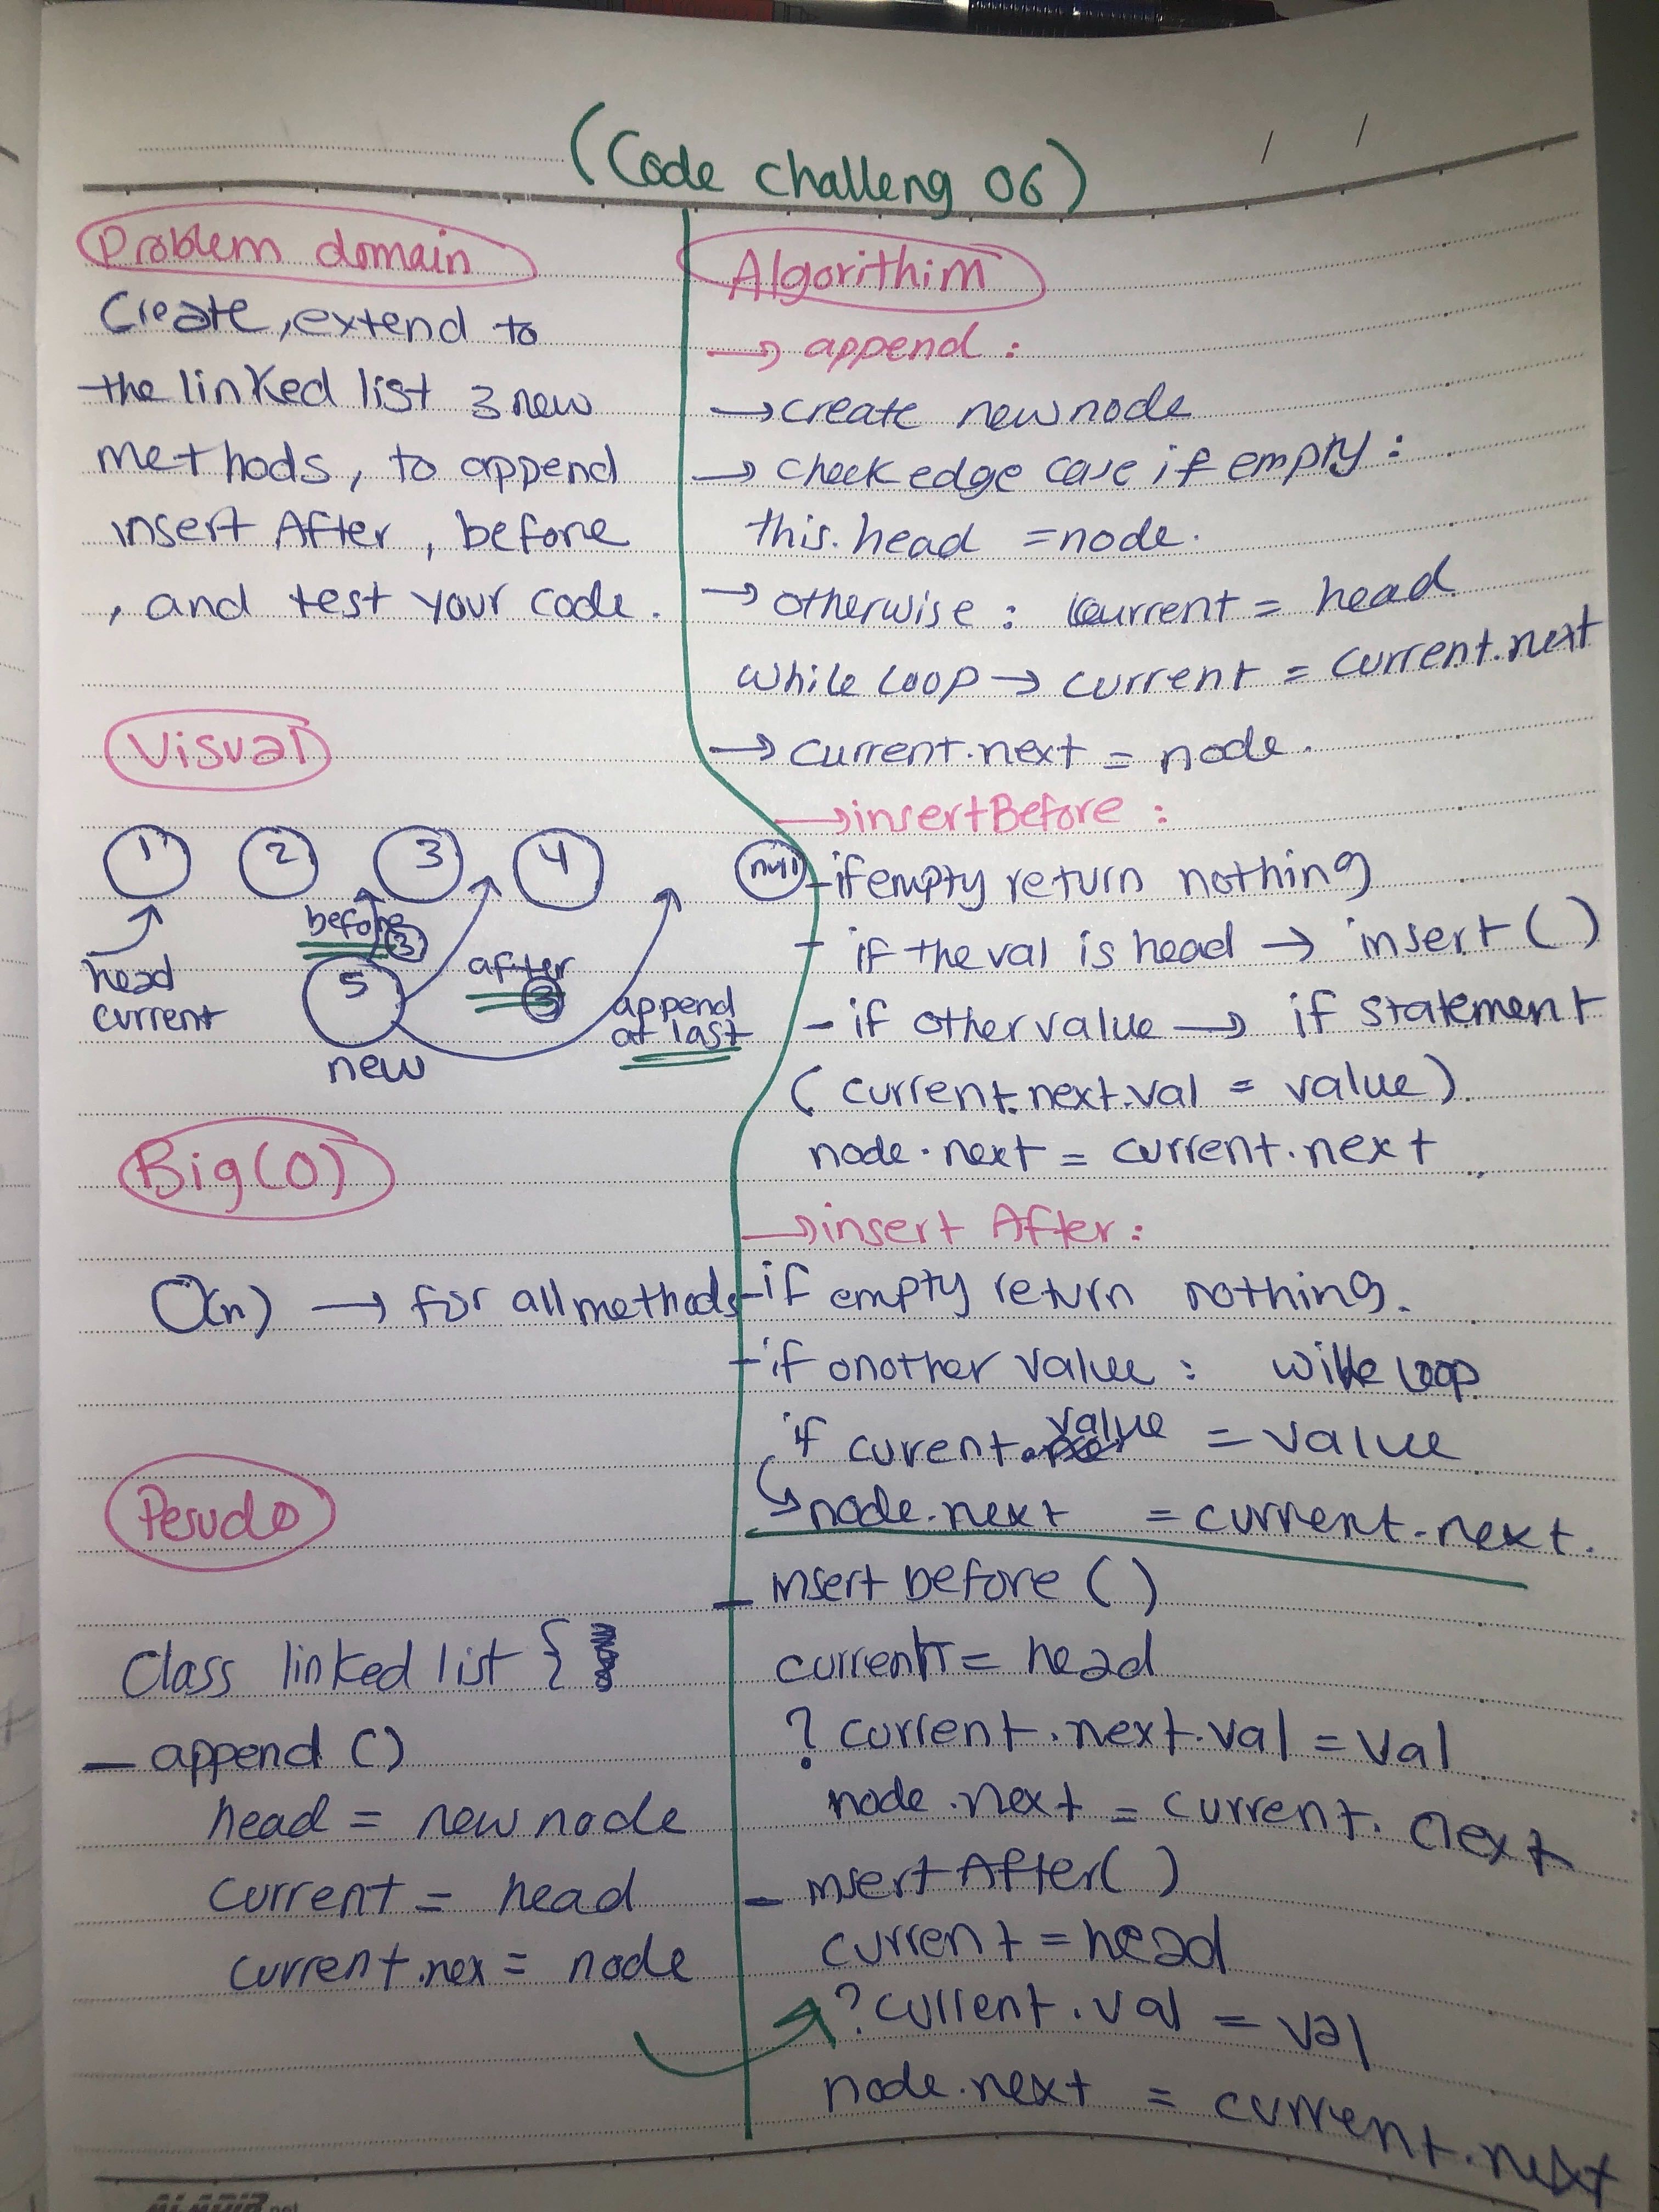 (Code challeng 06)
Problem domain
Create, extend to
the linked list 3 new
methods, to append
insert After, before
, and test your code.
Visual
1 2 3 4 null
before 3
head
current
5
new
after 3
append
at last
Big(O)
O(n) → for all methods
Pesudo
Class linked list {
- append ()
head = new node
current = head
current.nex = node
Algorithim
→ append :
→ create new node
→ check edge case if empty :
this.head = node.
→ otherwise : current = head
while loop → current = current.next
→ current.next = node.
→ insertBefore :
- if empty return nothing
- if the val is head → insert ()
- if other value → if statement
( current.next.val = value).
node.next = current.next
→ insert After :
- if empty return nothing.
- if onother value : wihle loop
if curent.value = value
↳ node.next = current.next.
- insert before ()
current = head
? current.next.val = val
node.next = current.next
- insert After( )
current = head
? current.val = val
node.next = current.next